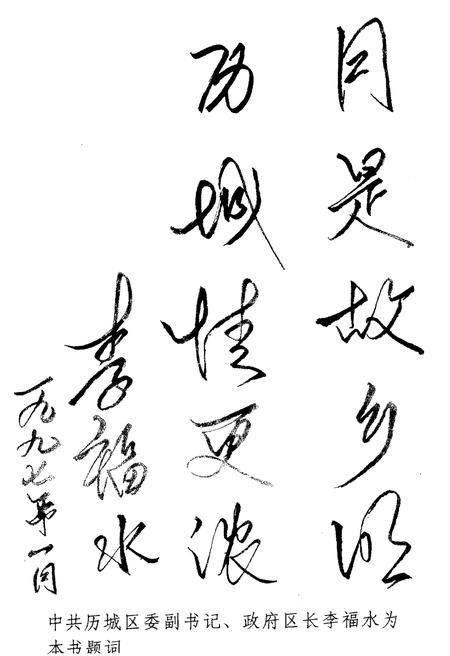 月是故乡明
历城情更浓
李福水
一九九七年一月
中共历城区委副书记、政府区长李福水为
本书题词